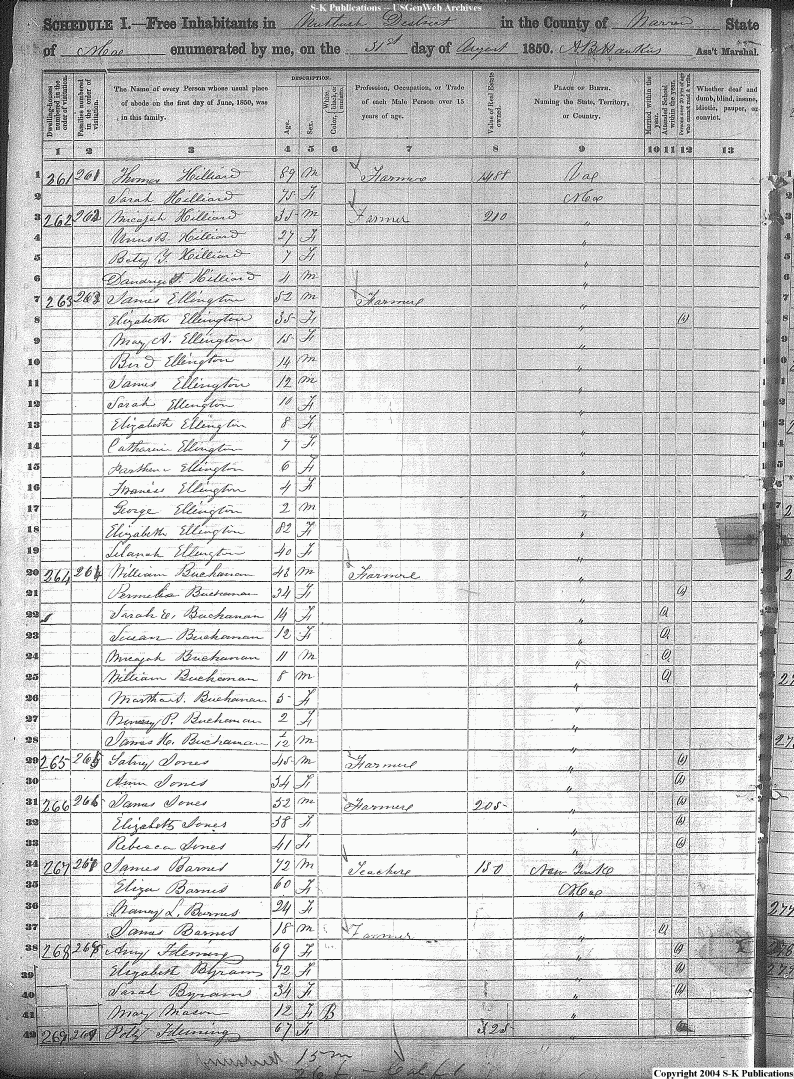 S-K Publications – USGenWeb Archives
SCHEDULE I.—Free Inhabitants in Nutbush District in the County of Warren State
of enumerated by me, on the 31st day of August 1850. Ass't Marshal.
Dwelling-houses numbered in the order of visitation.
Families numbered in the order of visitation.
The Name of every Person whose usual place of abode on the first day of June, 1850, was in this family.
DESCRIPTION.
Age.
Sex.
Color, White, black, or mulatto.
Profession, Occupation, or Trade of each Male Person over 15 years of age.
Value of Real Estate owned.
PLACE OF BIRTH. Naming the State, Territory, or Country.
Married within the year.
Attended School within the year.
Persons over 20 y'rs of age who cannot read & write.
Whether deaf and dumb, blind, insane, idiotic, pauper, or convict.
1 2 3 4 5 6 7 8 9 10 11 12 13
1 261 261 Thomas Hilliard 89 M Farmer Va
2 Sarah Hilliard 75 F
3 262 262 Micajah Hilliard 35 M Farmer 210 "
4 Hilliard 27 F "
5 Betsy Y. Hilliard 7 F "
6 Hilliard 4 M "
7 263 263 James Ellington 52 M Farmer "
8 Elizabeth Ellington 35 F " (1)
9 Mary A. Ellington 15 F "
10 Bird Ellington 14 M "
11 James Ellington 12 M "
12 Sarah Ellington 10 F "
13 Elizabeth Ellington 8 F "
14 Catharine Ellington 7 F "
15 Ellington 6 F "
16 Francis Ellington 4 F "
17 George Ellington 2 M "
18 Elizabeth Ellington 82 F "
19 Ellington 40 F "
20 264 264 William Buchanan 43 M Farmer "
21 Permelia Buchanan 34 F " (1)
22 Sarah E. Buchanan 14 F " (1)
23 Susan Buchanan 12 F " (1)
24 Micajah Buchanan 11 M " (1)
25 William Buchanan 8 M " (1)
26 Martha S. Buchanan 5 F "
27 Nancy P. Buchanan 2 F "
28 James H. Buchanan 1/12 M "
29 265 265 Jones 45 M Farmer " (1)
30 Ann Jones 34 F " (1)
31 266 266 James Jones 52 M Farmer 205 " (1)
32 Elizabeth Jones 38 F " (1)
33 Rebecca Jones 41 F " (1)
34 267 267 James Barnes 72 M Teacher 150 New York
35 Eliza Barnes 60 F
36 Nancy L. Barnes 24 F "
37 James Barnes 18 M Farmer " (1)
38 268 268 Amy Fleming 69 F " (1)
39 Elizabeth Byram 72 F " (1)
40 Sarah Byram 34 F " (1)
41 Mary Mason 12 F B "
42 269 269 Polly Fleming 67 F 325 "
15 m
26 f
Copyright 2004 S-K Publications